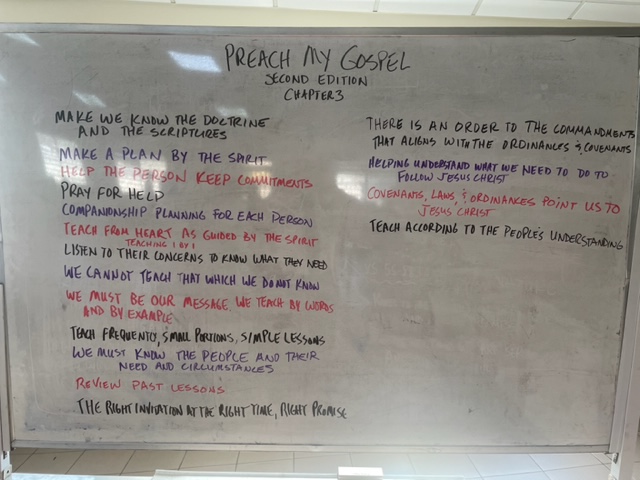 PREACH MY GOSPEL
SECOND EDITION
CHAPTER 3
MAKE WE KNOW THE DOCTRINE
AND THE SCRIPTURES
MAKE A PLAN BY THE SPIRIT
HELP THE PERSON KEEP COMMITMENTS
PRAY FOR HELP
COMPANIONSHIP PLANNING FOR EACH PERSON
TEACH FROM HEART AS GUIDED BY THE SPIRIT
TEACHING 1 BY 1
LISTEN TO THEIR CONCERNS TO KNOW WHAT THEY NEED
WE CANNOT TEACH THAT WHICH WE DO NOT KNOW
WE MUST BE OUR MESSAGE. WE TEACH BY WORDS
AND BY EXAMPLE
TEACH FREQUENTLY, SMALL PORTIONS, SIMPLE LESSONS
WE MUST KNOW THE PEOPLE AND THEIR
NEED AND CIRCUMSTANCES
REVIEW PAST LESSONS
THE RIGHT INVITATION AT THE RIGHT TIME, RIGHT PROMISE
THERE IS AN ORDER TO THE COMMANDMENTS
THAT ALIGNS WITH THE ORDINANCES & COVENANTS
HELPING UNDERSTAND WHAT WE NEED TO DO TO
FOLLOW JESUS CHRIST
COVENANTS, LAWS, & ORDINANCES POINT US TO
JESUS CHRIST
TEACH ACCORDING TO THE PEOPLE'S UNDERSTANDING